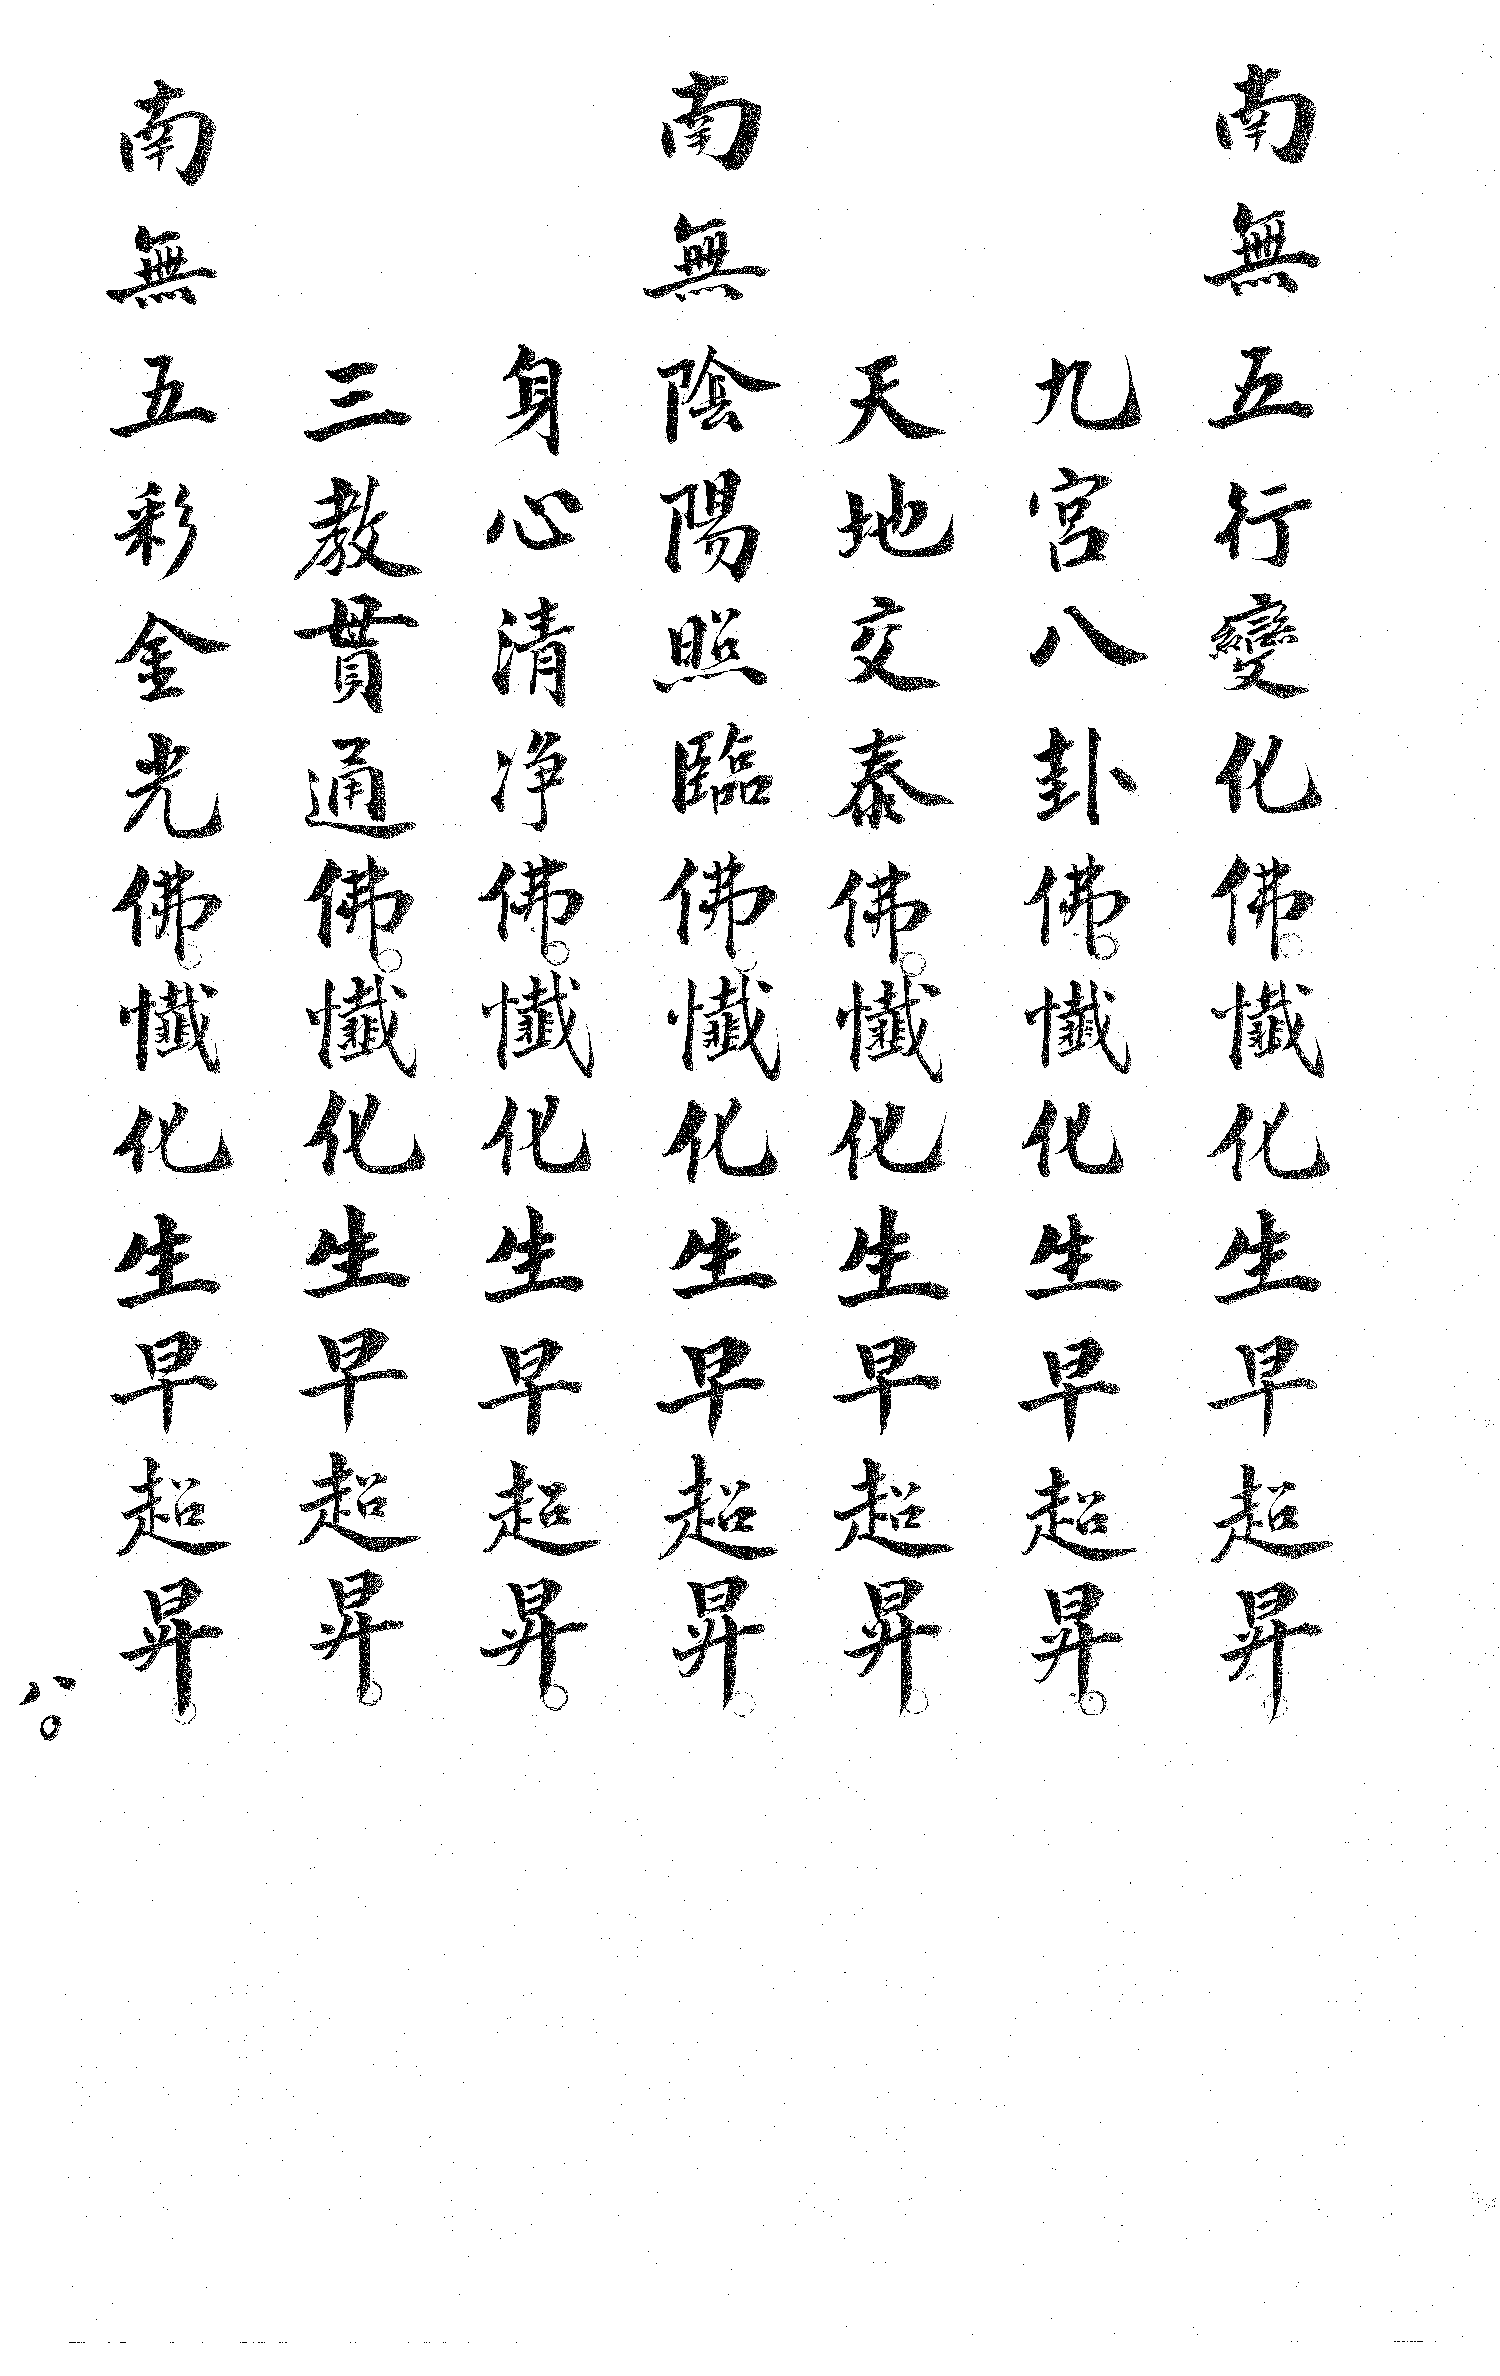 南無五行變化佛。懺化生早超昇。
九宮八卦佛。懺化生早超昇。
天地交泰佛。懺化生早超昇。
南無陰陽照臨佛。懺化生早超昇。
身心清净佛。懺化生早超昇。
三教貫通佛。懺化生早超昇。
南無五彩金光佛。懺化生早超昇。
八○